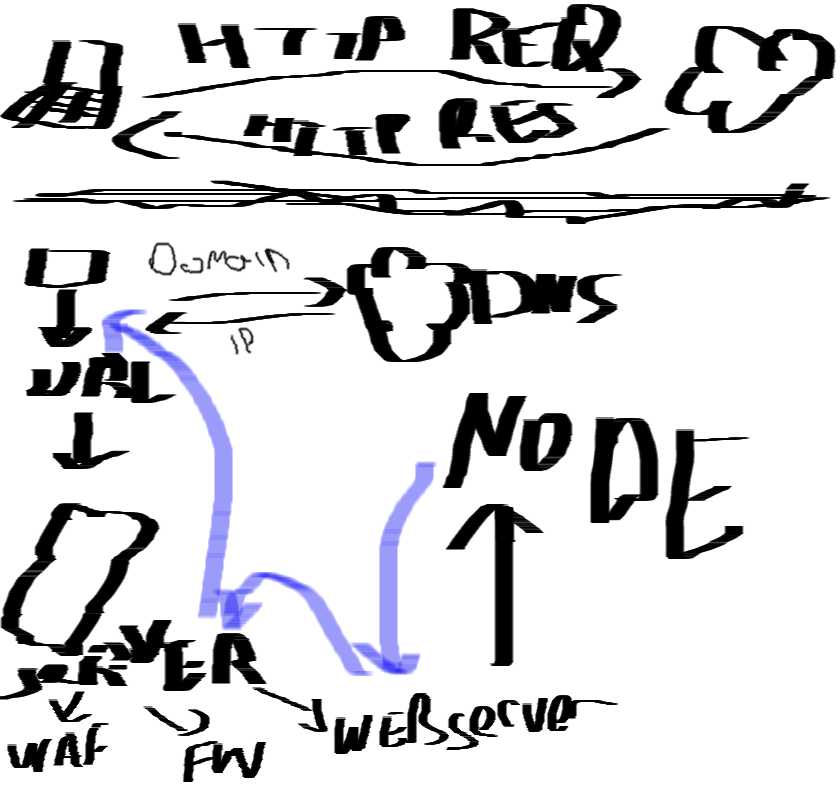 HTTP REQ
HTTP RES
Domain
DNS
IP
URL
NODE
SERVER
WEBserver
WAF
FW